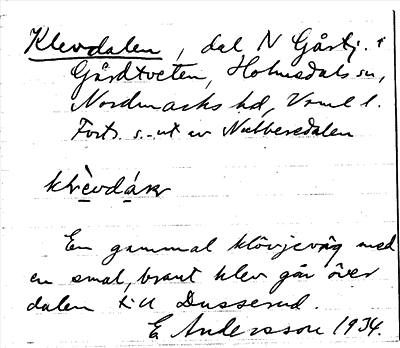 Klevdalen, dal N Gårtj. i
Gårdtveten, Holmedals sn,
Nordmarks hd, Vrml l.
Forts. s.-ut av Nutberedalen
klèvdáɳ
En gammal klövjeväg med
en smal, brant klev går över
dalen till Dusserud.
E. Andersson 1934.